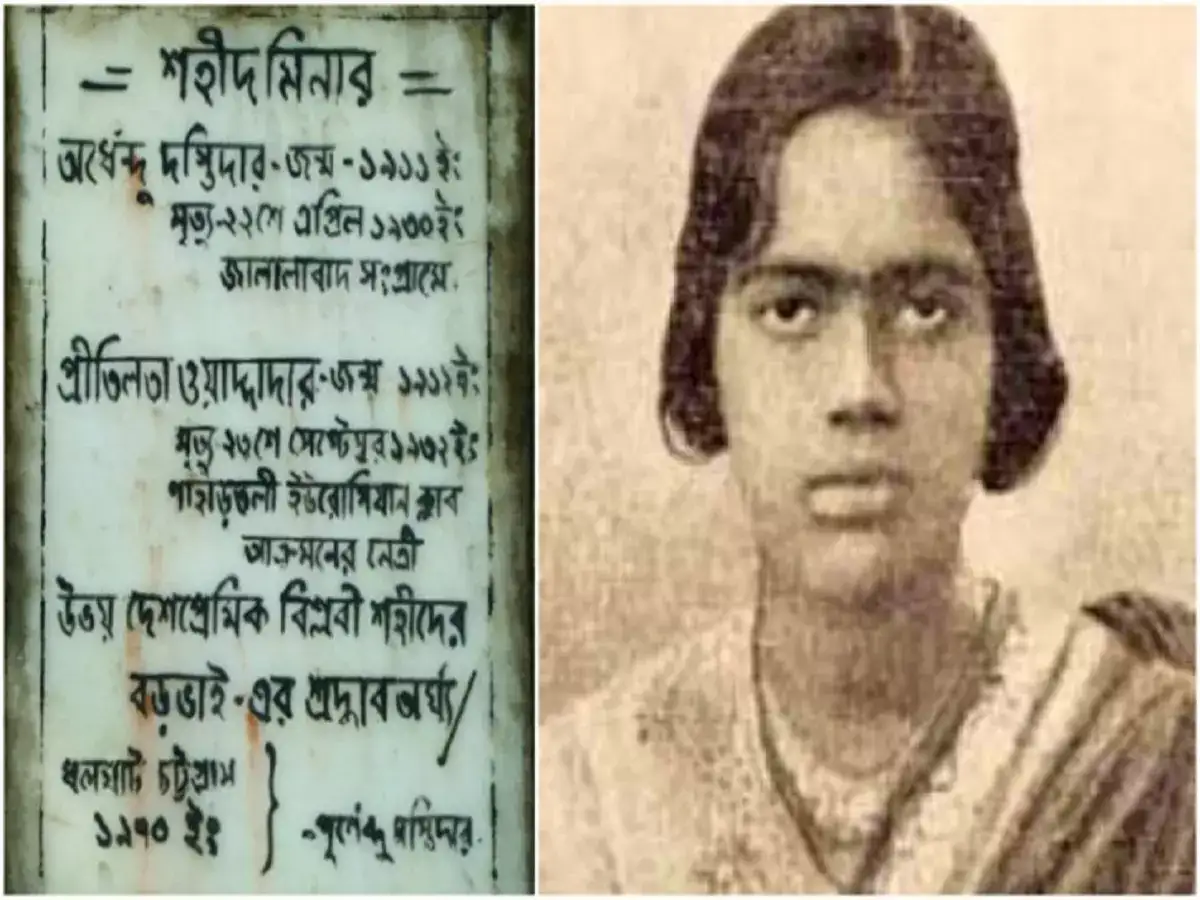 = শহীদ মিনার =
অর্ধেন্দু দস্তিদার - জন্ম - ১৯১১ ইং
মৃত্যু - ২২শে এপ্রিল ১৯৩০ ইং
জালালাবাদ সংগ্রামে.
প্রীতিলতা ওয়াদ্দাদার - জন্ম ১৯১১ ইং
মৃত্যু ২৩শে সেপ্টেম্বর ১৯৩২ ইং
পাহাড়তলী ইউরোপিয়ান ক্লাব
আক্রমনের নেত্রী
উভয় দেশপ্রেমিক বিপ্লবী শহীদের
বড়ভাই - এর শ্রদ্ধার অর্ঘ্য /
ধলঘাট চট্টগ্রাম
১৯৭০ ইং } - পূর্ণেন্দু দস্তিদার.